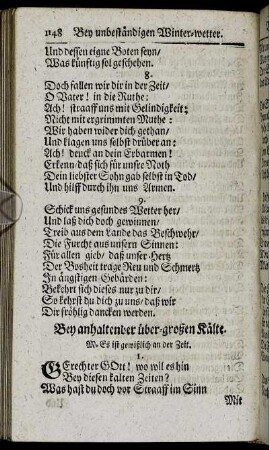 1148 Bey unbeständigen Winter-wetter.
Und dessen eigne Boten seyn/
Was künftig sol geschehen.
8.
Doch fallen wir dir in der Zeit/
O Vater! in die Ruthe:
Ach! straaff uns mit Gelindigkeit;
Nicht mit ergrimmten Muthe:
Wir haben wider dich gethan/
Und klagen uns selbst drüber an:
Ach! denck an dein Erbarmen!
Erkenn/ daß sich für unsre Noth
Dein liebster Sohn gab selbst in Tod/
Und hilff durch ihn uns Armen.
9.
Schick uns gesundes Wetter her/
Und laß dich doch gewinnen/
Treib aus dem Lande das Beschwehr/
Die Furcht aus unsern Sinnen:
Für allen gieb/ daß unser Hertz
Der Bosheit trage Reu und Schmertz
In ängstigen Gebärden:
Bekehrt sich dieses nur zu dir/
So kehrst du dich zu uns/ daß wir
Dir frölich dancken werden.
Bey anhaltender über-großen Kälte.
M. Es ist gewißlich an der Zeit.
1.
GErechter GOtt! wo will es hin
Bey diesen kalten Zeiten?
Was hast du doch vor Straaff im Sinn
Mit